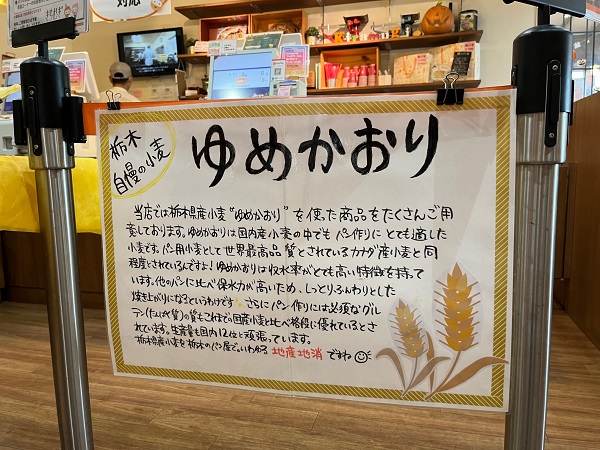 対応
栃木
自慢の小麦
ゆめかおり
当店では栃木県産小麦“ゆめかおり”を使った商品をたくさんご用
意しております。ゆめかおりは国内産小麦の中でもパン作りにとても適した
小麦です。パン用小麦として世界最高品質とされているカナダ産小麦と同
程度とされているんですよ♪ゆめかおりは吸水率がとても高い特徴を持って
います。他のパンに比べ保水力が高いため、しっとりふんわりとした
焼き上がりになるというわけです さらにパン作りには必須なグル
テン(たんぱく質)の質もこれまでの国産小麦と比べ格段に優れているとさ
れています。生産量も国内12位と頑張っています。
栃木県産小麦を栃木のパン屋で。いわゆる 地産地消 ですね